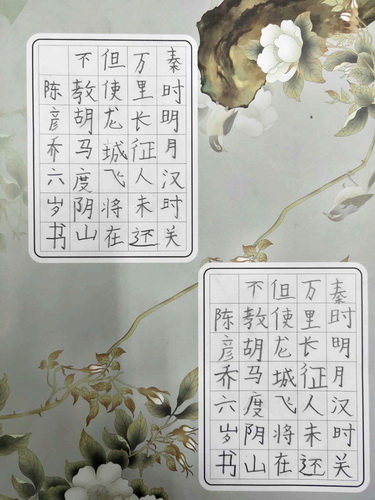 秦时明月汉时关
万里长征人未还
但使龙城飞将在
不教胡马度阴山
陈彦乔六岁书
秦时明月汉时关
万里长征人未还
但使龙城飞将在
不教胡马度阴山
陈彦乔六岁书